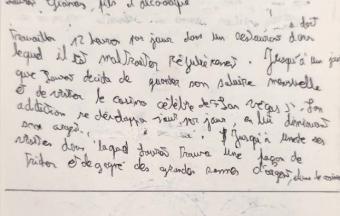 fils d'alcoolique
doit
travailler 12 heures par jour dans un restaurant dans
lequel il est maltraiter régulièrement. Jusqu'à un jour
que décida de garder son salaire mensuelle
et de visiter le casino célèbre de "Las Vegas". Son
addiction se développa jour par jour, en lui
son argent. Jusqu'à une de ses
visites dans laquel trouva une façon de
tricher et de gagné des grandes sommes d'argent, dans le casino